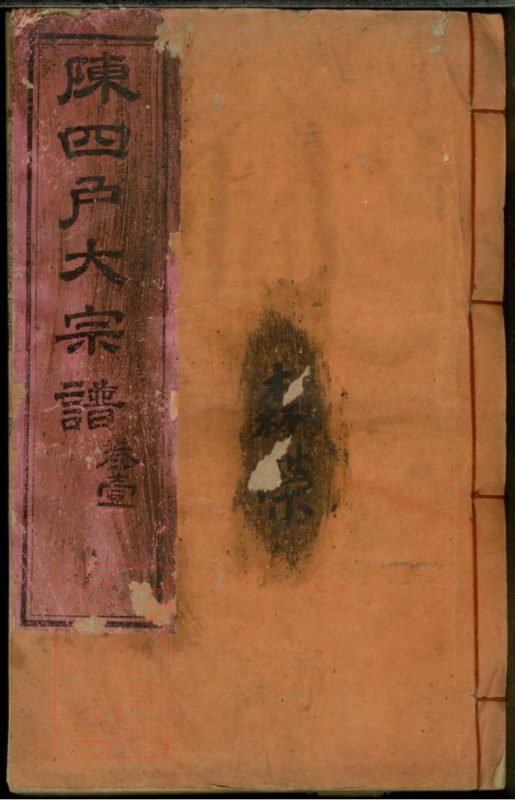 陳四戶大宗譜
卷壹